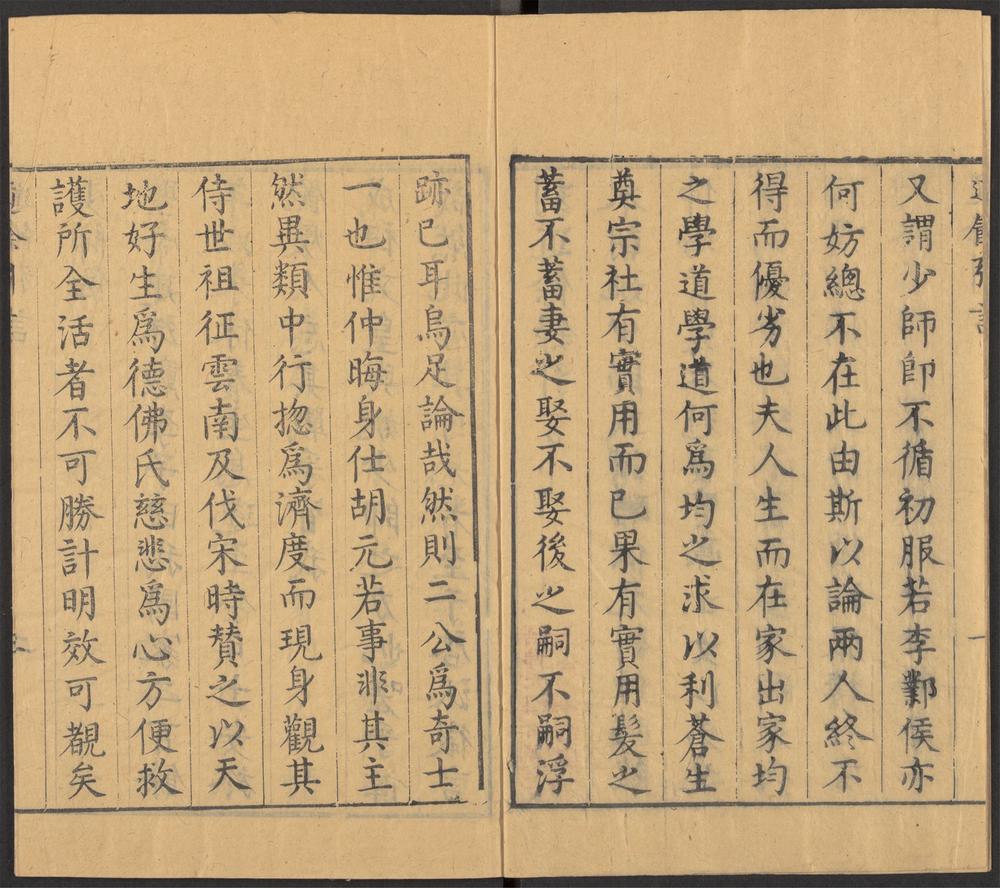 又謂少師卽不循初服若李鄴侯亦
何妨總不在此由斯以論兩人終不
得而優劣也夫人生而在家出家均
之學道學道何爲均之求以利蒼生
奠宗社有實用而已果有實用髮之
蓄不蓄妻之娶不娶後之嗣不嗣浮
跡已耳烏足論哉然則二公爲奇士
一也惟仲晦身仕胡元若事非其主
然異類中行揔爲濟度而現身觀其
侍世祖征雲南及伐宋時賛之以天
地好生爲德佛氏慈悲爲心方便救
護所全活者不可勝計明效可覩矣